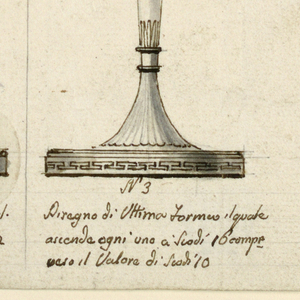 N° 3
Disegno di Ultima Forma il quale
ascende ogni uno a Scodi 16 comp
il Valore di Scodi 10